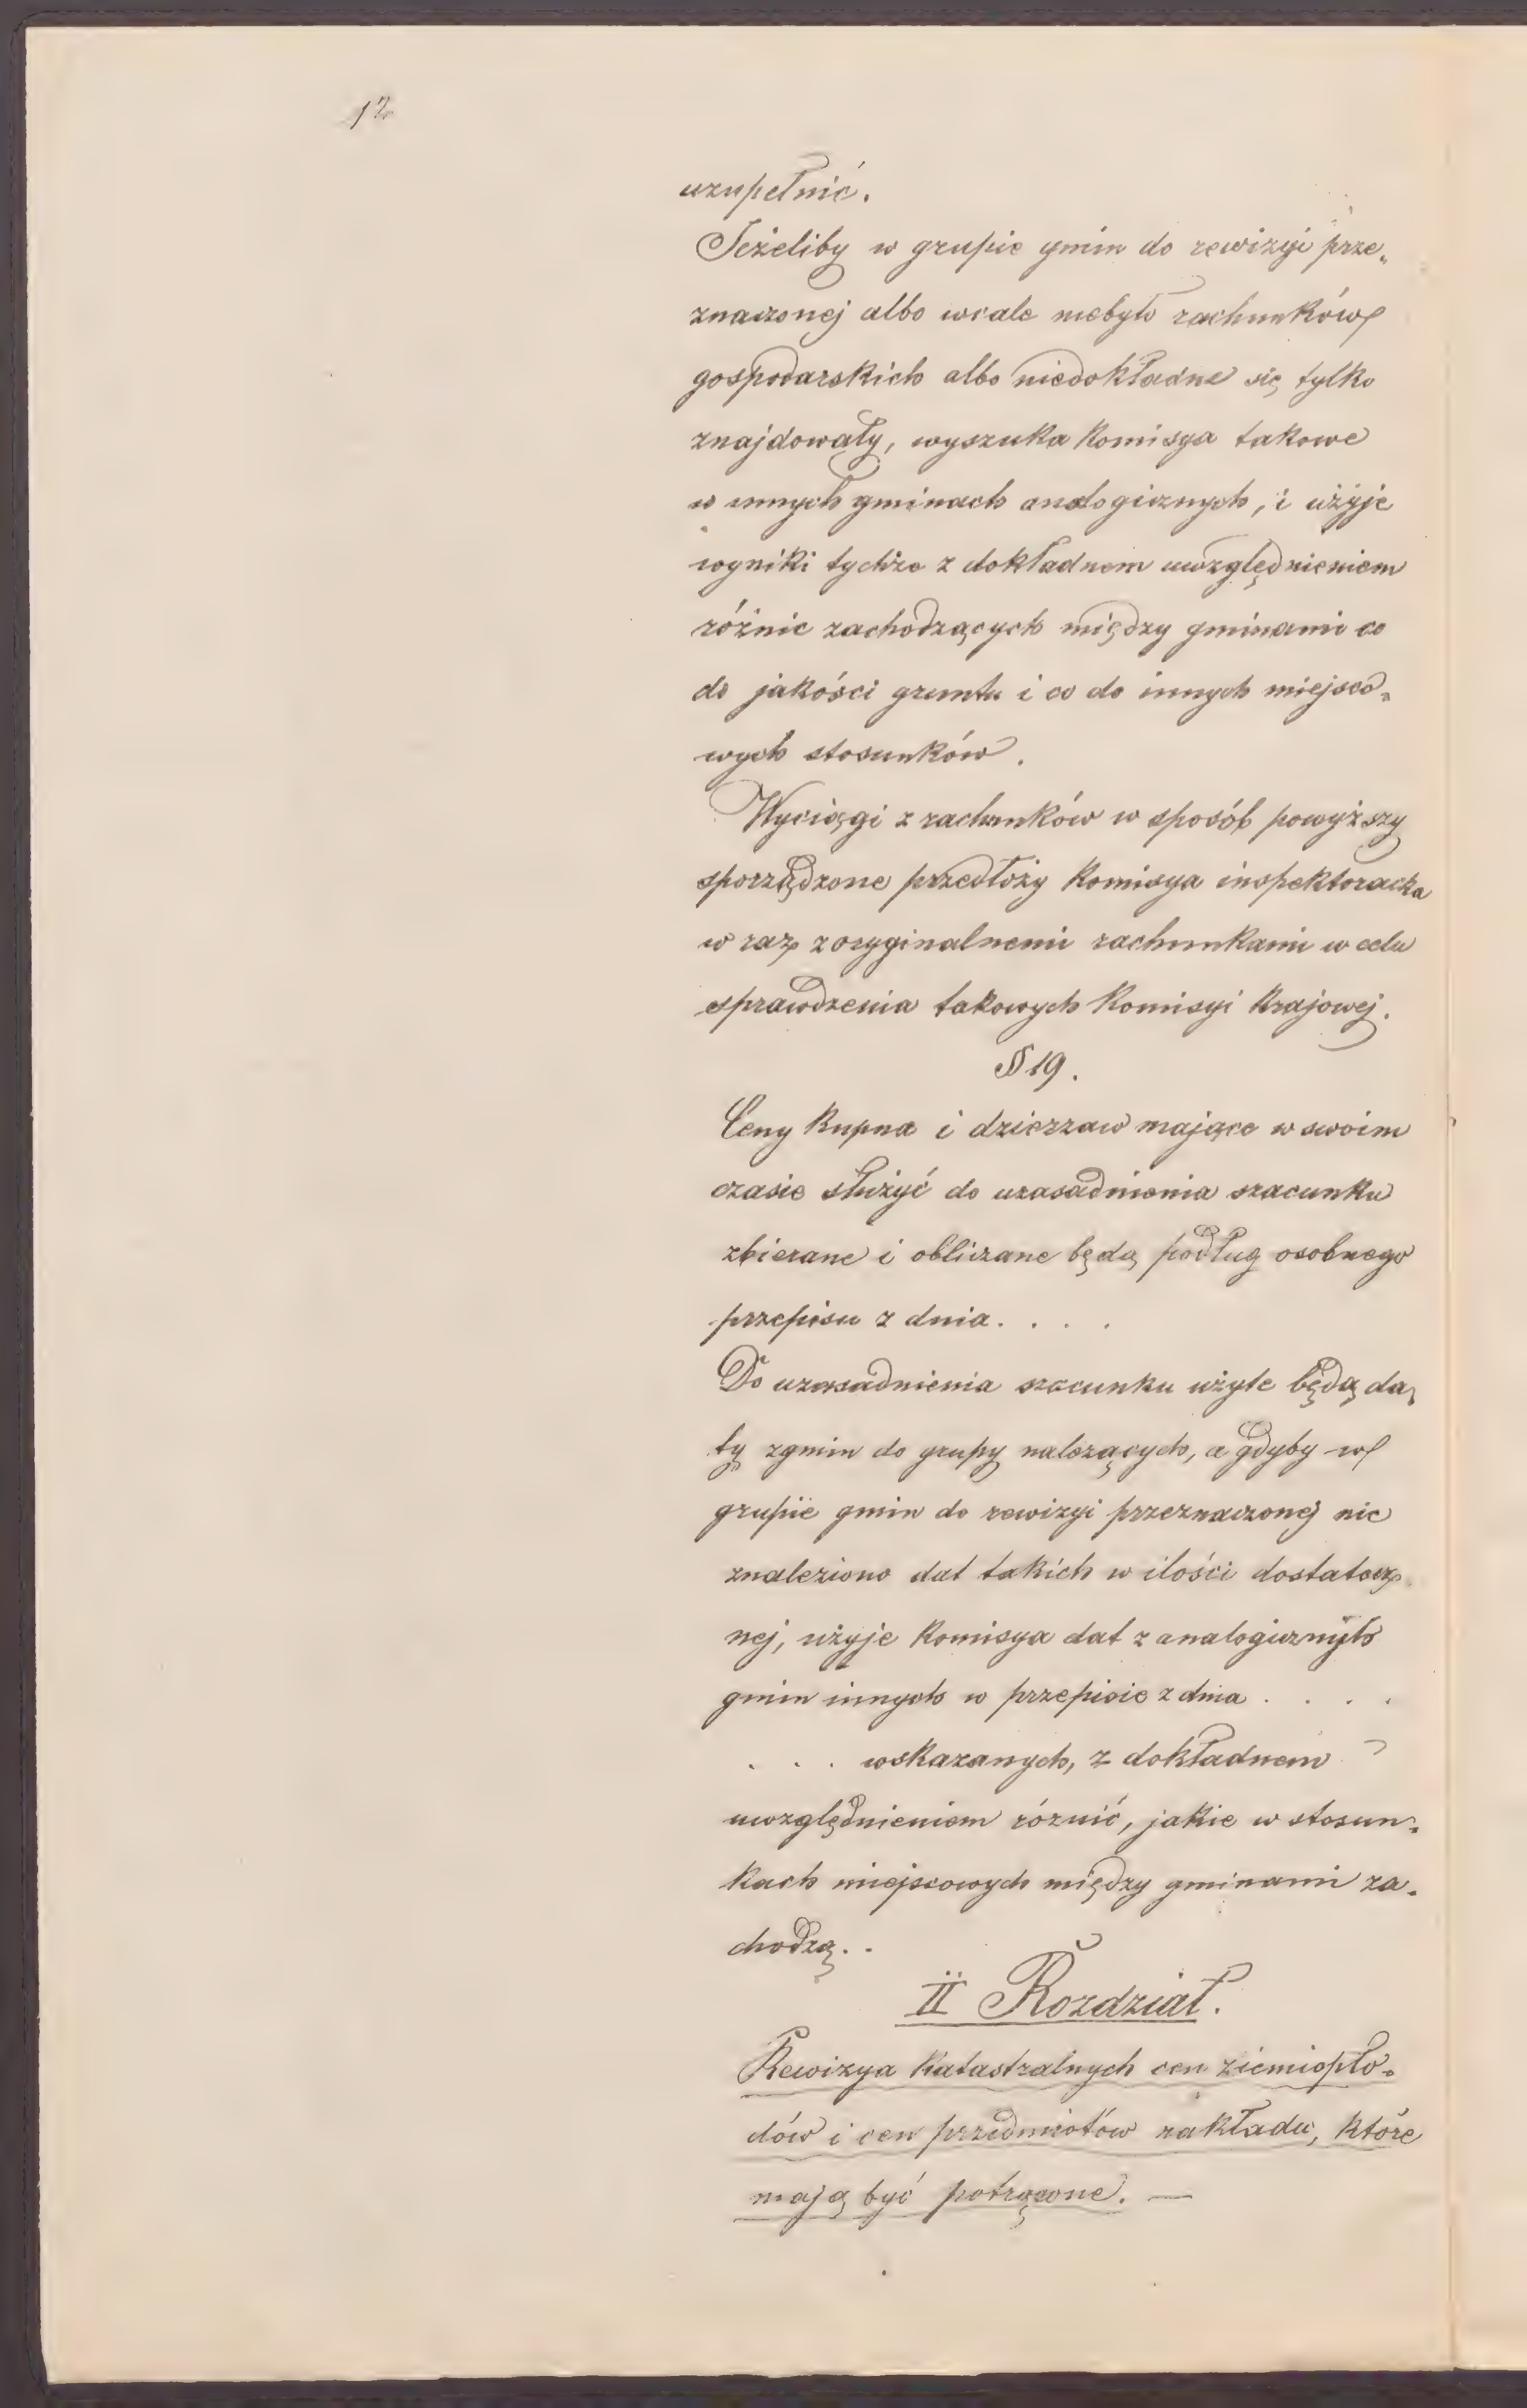 12
uzupełnić.
Jeżeliby w grupie gmin do rewizyi prze„
znaczonej albo wcale niebyło rachunków
gospodarskich albo niedokładne się tylko
znajdowały, wyszuka Komisya takowe
w innych gminach analogicznych, i użyje
wyniki tychże z dokładnem uwzględnieniem
różnic zachodzących między gminami co
do jakości gruntu i co do innych miejsco„
wych stosunków.
Wyciągi z rachunków w sposób powyższy
sporządzone przedłoży Komisya inspektoracka
w raz z oryginalnemi rachunkami w celu
sprawdzenia takowych Komisyi Krajowej.
§ 19.
Ceny Kupna i dzierzaw mające w swoim
czasie służyć do uzasadnienia szacunku
zbierane i obliczane będą podług osobnego
przepisu z dnia . . . .
Do uzasadnienia szacunku użyte będą da„
ty z gmin do grupy nalezących, a gdyby w
grupie gmin do rewizyi przeznaczonej nie
znaleziono dat takich w ilości dostatecz
nej, użyje Komisya dat z analogicznych
gmin innych w przepisie z dnia . . . .
. . . wskazanych, z dokładnem
uwzględnieniem róznic, jakie w stosun„
kach miejscowych między gminami za„
chodzą. .
II Rozdział.
Rewizya Katastralnych cen ziemiopło„
dów i cen przedmiotów zakładu, które
mają być potrącone. —